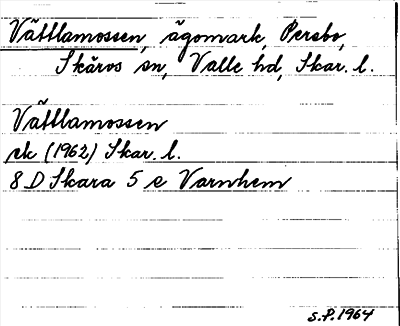 Vättlamossen, ägomark, Persbo,
Skärvs sn, Valle hd, Skar. l.
Vättlamossen
ek (1962) Skar. l.
8 D Skara 5 e Varnhem
S.P. 1964